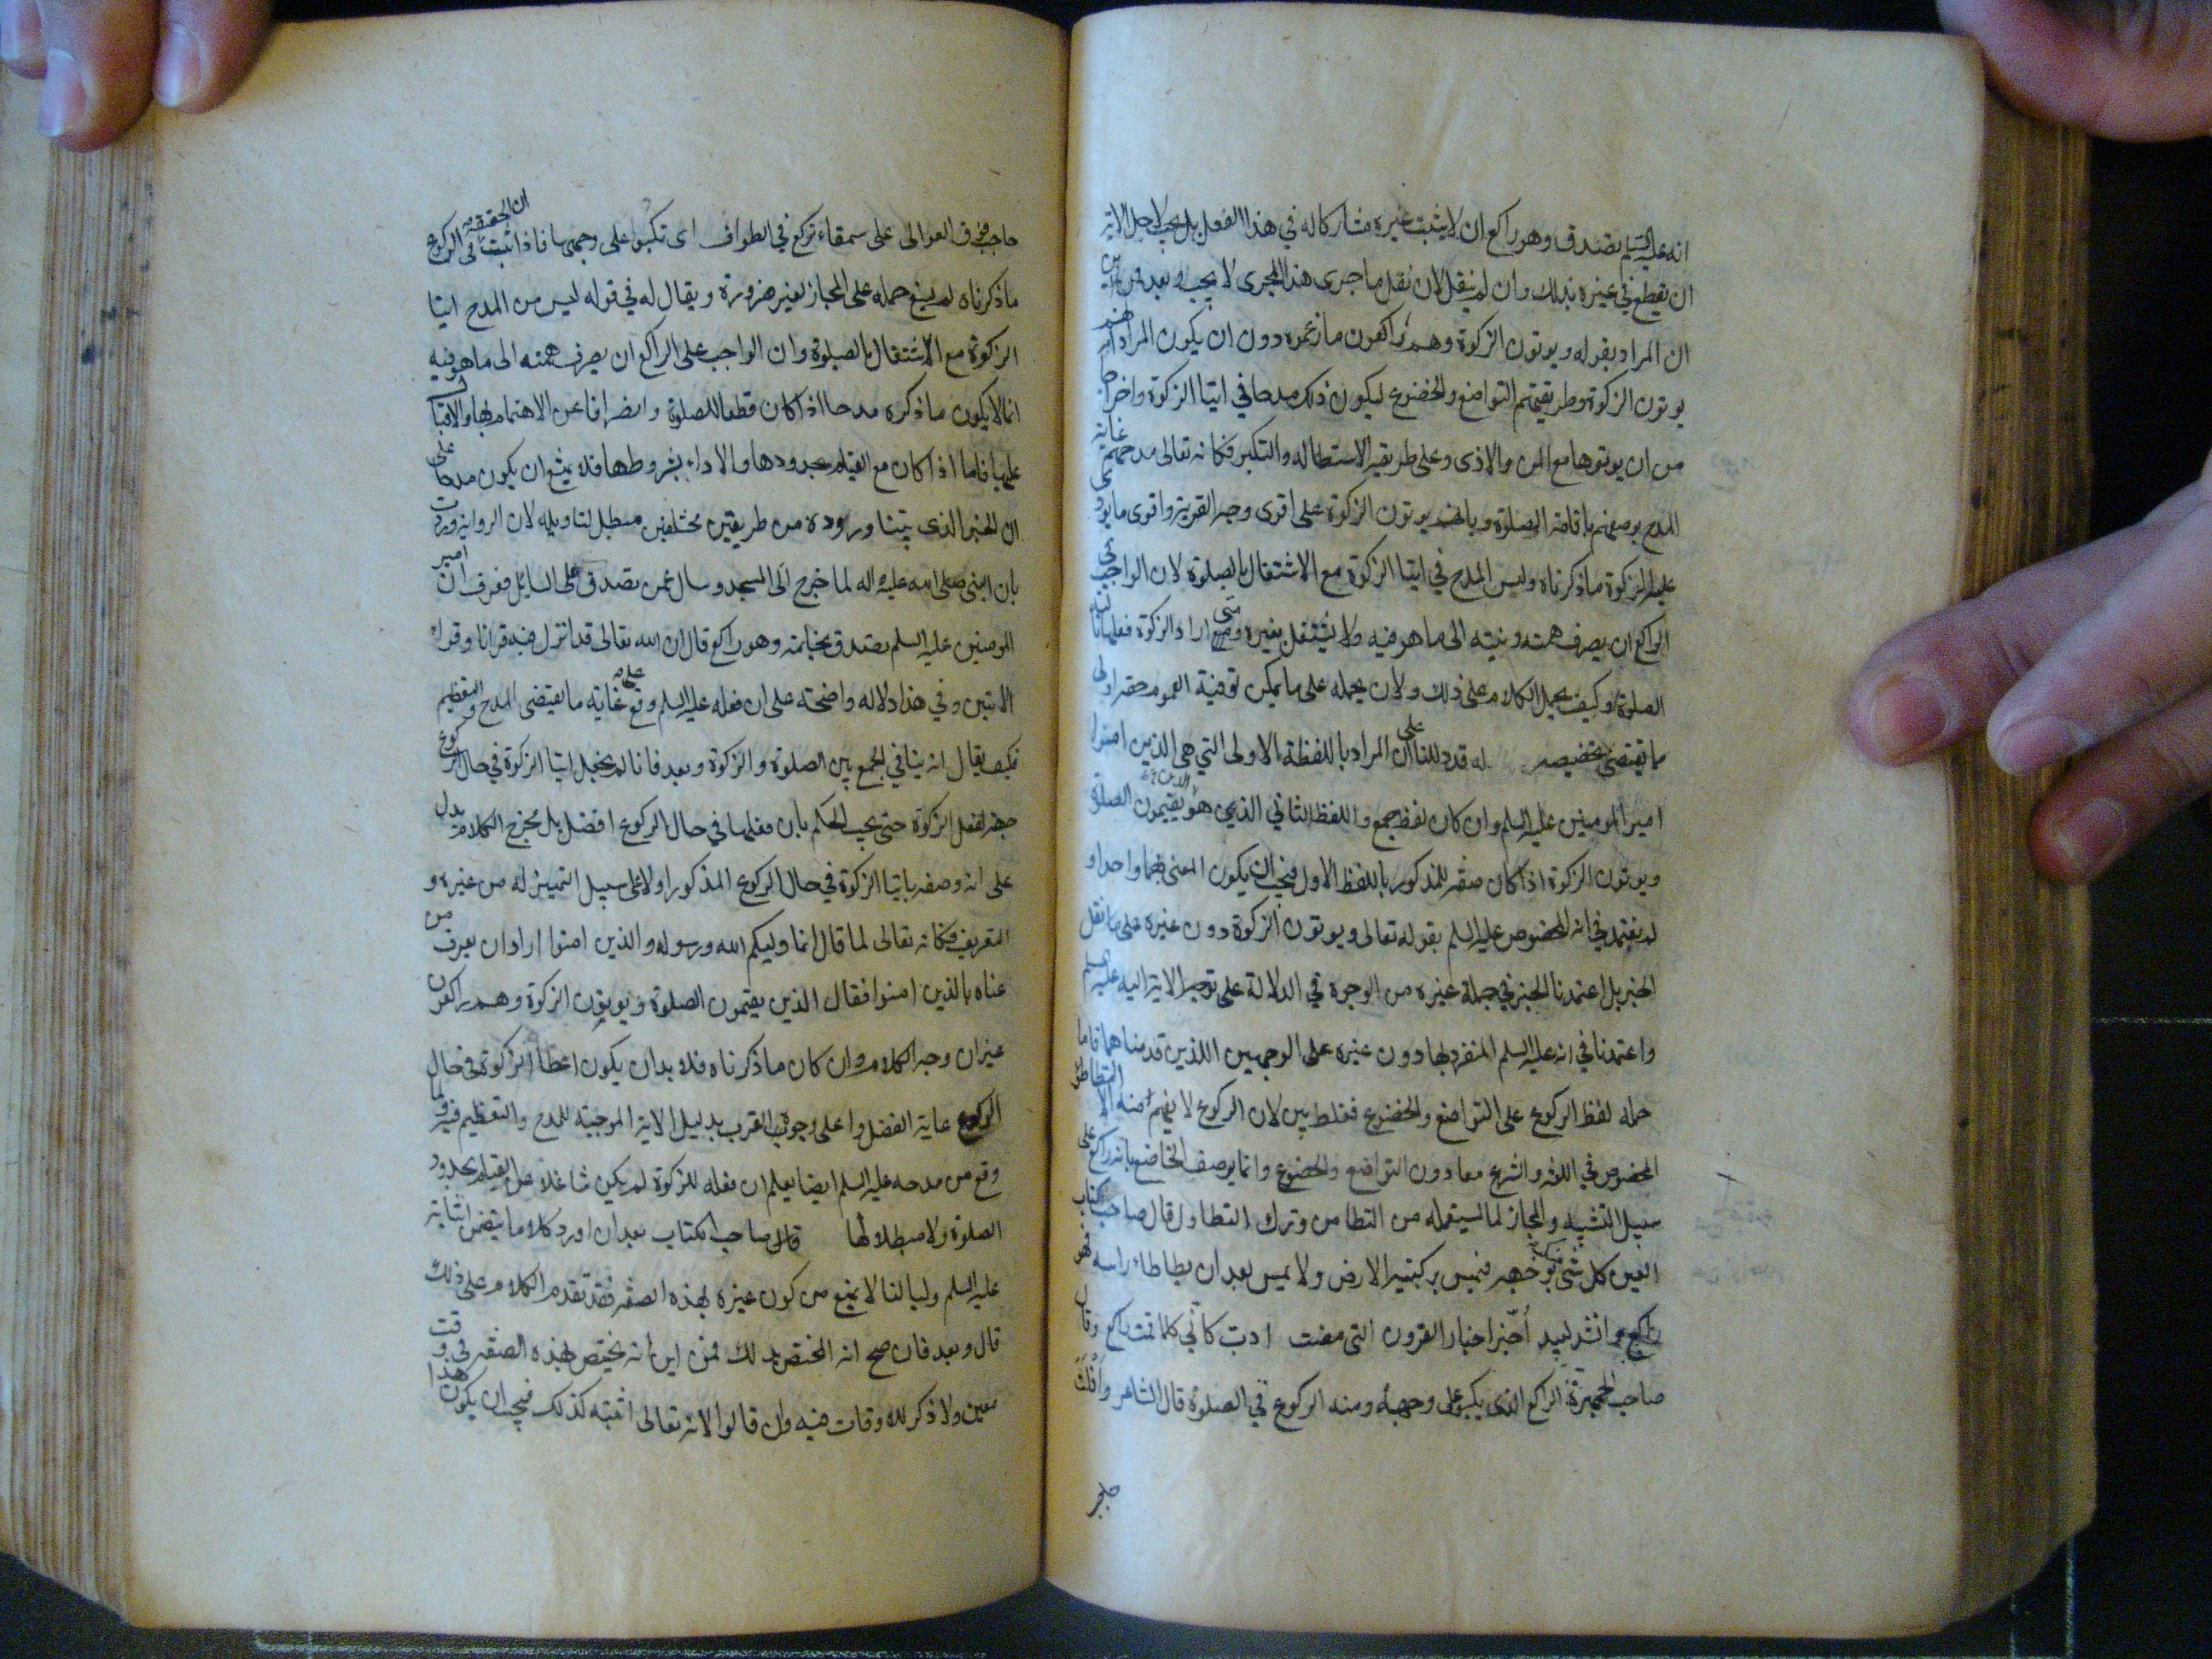 انه عليه السلم تصدق وهو راكع ان لا يثبت غيره مشاركا له في هذا الفعل بل يجب لاجل الاية
ان يقطع في غيره بذلك وان لم ينقل لان نقل ما جرى هذا المجرى لا يجب وبعد فمن اين
ان المراد بقوله ويوتون الزكوة وهم راكعون ما زعموه دون ان يكون المراد انهم
يوتون الزكوة وطريقتهم التواضع والخضوع ليكون ذلك مدحا في ايتا الزكوة واخراجا
من ان يوتوها مع المن والاذى وعلى طريقة الاستطالة والتكبر فكانه تعالى مدحهم غاية
المدح بوصفهم باقامة الصلوة وبانهم يوتون الزكوة على اقوى وجه القربة واقوى ما يودى
عليه الزكوة ما ذكرناه وليس المدح في ايتا الزكوة مع الاشتغال بالصلوة لان الواجب في
الراكع ان يصرف همته ونيته الى ما هو فيه ولا يشتغل بغيره ومتى اراد الزكوة فعلها تالية
الصلوة وكيف يحمل الكلام على ذلك ولان يحمله على ما يمكن توفية العموم حقه اولى
مما يقتضى تخصيصه له قد دللنا على ان المراد باللفظة الاولى التي هي الذين امنوا
امير المومنين عليه السلم وان كان لفظ جمع واللفظ الثاني الذي هو الذين يقيمون الصلوة
ويوتون الزكوة اذا كان صفة للمذكور باللفظ الاول فيجب ان يكون المعنى بهما واحدا و
لم نعتمد في انه المخصوص عليه السلم بقوله تعالى ويوتون الزكوة دون غيره على ما نقل
الخبر بل اعتمدنا الخبر في جملة غيره من الوجوه في الدلالة على توجه الاية اليه عليه السلم
واعتمدنا في انه عليه السلم المنفرد بها دون غيره على الوجهين اللذين قدمناهما فاما
حمله لفظ الركوع على التواضع والخضوع فغلط بين لان الركوع لا يفهم منه الا التطاطؤ
المخصوص في اللغة والشرع معا دون التواضع والخضوع وانما يوصف الخاضع بانه راكع على
سبيل التشبيه والمجاز لما يستعمله من التطامن وترك التطاول قال صاحب كتاب
العين كل شى ينكب لوجهه فتمس ركبتيه الارض ولا يمس بعد ان يطاطاء راسه فهو
راكع وانشد لبيد اُخبّر اخبار القرون التى مضت ادب كأني كلما قمت راكع وقال
صاحب الجمهرة الراكع الذى يكبو على وجهه ومنه الركوع في الصلوة قال الشاعر وَاَفْلَتَ
حاجب
حاجب فوق العوالى على شمقاء تركع في الطواف اى تكبو على وجهها فاذا ثبت ان الحقيقة فى الركوع
ما ذكرناه لم يسغ حمله على المجاز بغير ضرورة ويقال له في قوله ليس من المدح ايتا
الزكوة مع الاشتغال بالصلوة وان الواجب على الراكع ان يصرف همته الى ما هو فيه
انما لا يكون ما ذكره مدحا اذا كان قطعا للصلوة وانصرافا عن الاهتمام بها والاقبال
عليها فاما اذا كان مع القيام بحدودها والاداء بشروطها فلا يمتنع ان يكون مدحا على
ان الخبر الذى بينا وروده من طريقين مختلفين مبطل لتاويله لان الرواية وردت
بان النبى صلى الله عليه واله لما خرج الى المسجد وسال عمن تصدق على السايل فعرف ان امير
المومنين عليه السلم تصدق بخاتمه وهو راكع قال ان الله تعالى قد انزل فيه قرانا وقراء
الايتين وفي هذا دلالة واضحة على ان فعله عليه السلم وقع على غاية ما يقتضى المدح والتعظيم
فكيف يقال انه ينافي الجمع بين الصلوة والزكوة وبعد فانا لم نجعل ايتا الزكوة في حال الركوع
جهة لفعل الزكوة حتى يجب الحكم بان فعلها في حال الركوع افضل بل مخرج الكلام يدل
على انه وصفه بايتا الزكوة في حال الركوع المذكور اولا على سبيل التمييز له من غيره و
التعريف فكانه تعالى لما قال انما وليكم الله ورسوله والذين امنوا اراد ان يعرف من
عناه بالذين امنوا فقال الذين يقيمون الصلوة ويوتون الزكوة وهم راكعون
غير ان وجه الكلام وان كان ما ذكرناه فلا بد ان يكون اعطا الزكوة في حال
الركوع غاية الفضل واعلى وجوه القرب بدليل الاية الموجبة للمدح والتعظيم فيه ولما
وقع من مدحه عليه السلم ايضا يعلم ان فعله للزكوة لم يكن شاغلا عن القيام بحدود
الصلوة ولا مبطلا لها قال صاحب الكتاب بعد ان اورد كلاما يتضمن اثباته
عليه السلم وليا لنا لا يمنع من كون غيره بهذه الصفة فقد تقدم الكلام على ذلك
قال وبعد فان صح انه المختص بذلك فمن اين انه يختص بهذه الصفة في وقت
معين ولا ذكر للاوقات فيه وان قالوا لانه تعالى اثبته كذلك فيجب ان يكون هذا